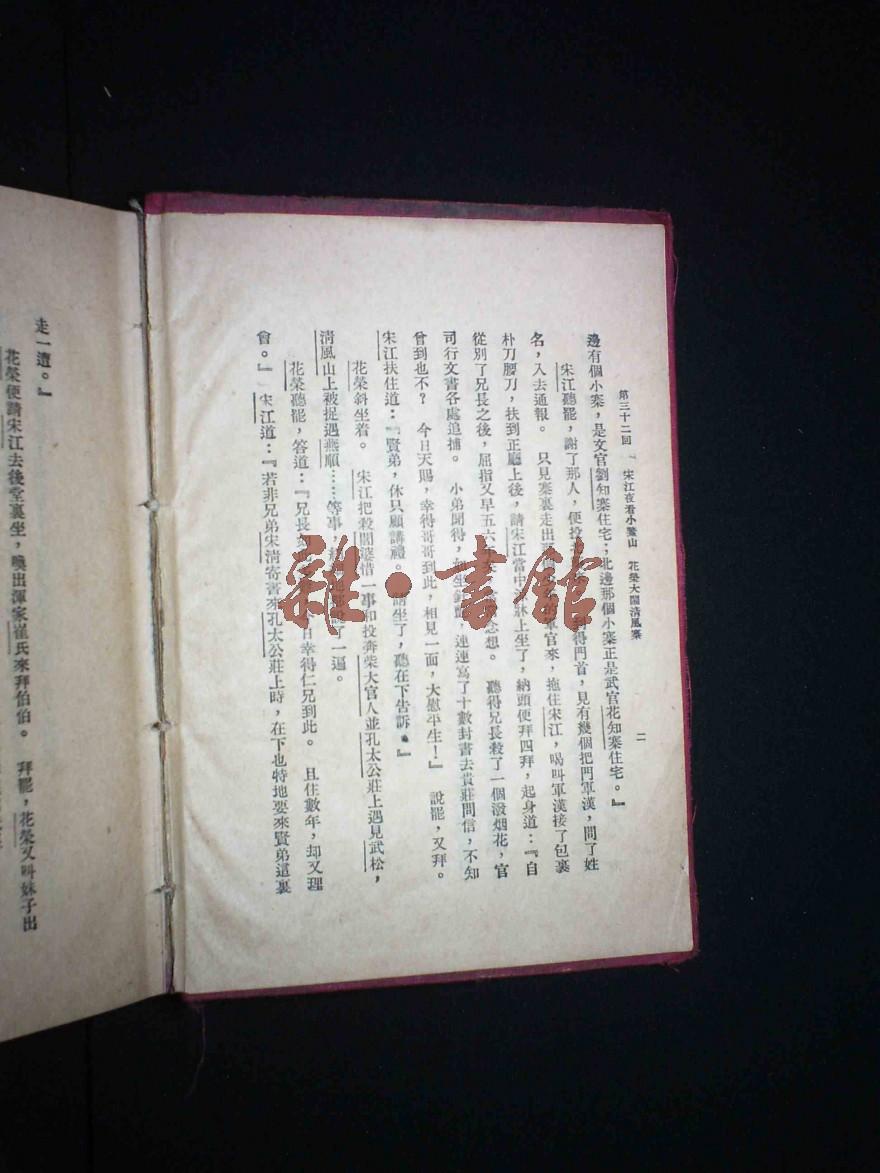 第三十二回 宋江夜看小鰲山 花榮大鬧清風寨
二
邊有個小寨，是文官劉知寨住宅；北邊那個小寨正是武官花知寨住宅。』
宋江聽罷，謝了那人，便投 到得門首，見有幾個把門軍漢，問了姓
名，入去通報。 只見寨裏走出 的軍官來，拖住宋江，喝叫軍漢接了包裹
朴刀腰刀，扶到正廳上後，請宋江當中 牀上坐了，納頭便拜四拜，起身道：『自
從別了兄長之後，屈指又早五六 念想。 聽得兄長殺了一個潑烟花，官
司行文書各處追捕。 小弟聞得，如坐針 連連寫了十數封書去貴莊問信，不知
曾到也不？ 今日天賜，幸得哥哥到此，相見一面，大慰平生！』 說罷，又拜。
宋江扶住道：『賢弟，休只顧講禮。 請坐了，聽在下告訴。』
花榮斜坐着。 宋江把殺閻婆惜一事和投奔柴大官人並孔太公莊上遇見武松，
清風山上被捉遇燕順……等事， 說了一遍。
花榮聽罷，答道：『兄長 日幸得仁兄到此。 且住數年，却又理
會。』 宋江道：『若非兄弟宋清寄書來孔太公莊上時，在下也特地要來賢弟這裏
走一遭。』
花榮便請宋江去後堂裏坐，喚出渾家崔氏來拜伯伯。 拜罷，花榮又叫妹子出
雜·書館